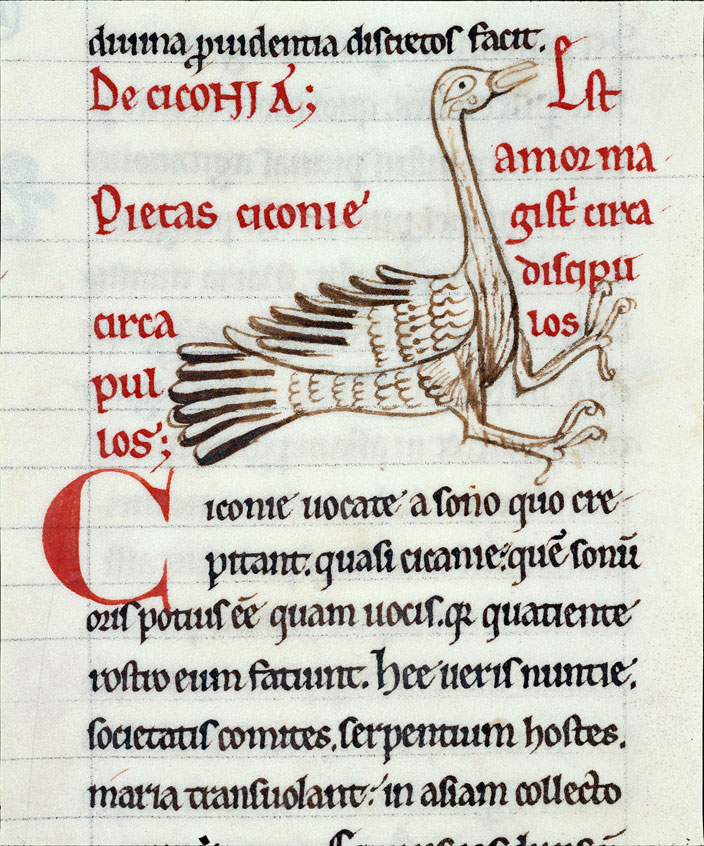 diuina ꝓuidentia discretos facit.
De ciconia; Est
amor ma
Pietas ciconie gist̄ circa
discipu
circa los
pul
los;
Ciconie uocate a sono quo cre
pitant. quasi cicanie. quē sonū
oris potius ēē quam uocis. qꝛ quatiente
rostro eum faciunt. hee ueris nuntie.
societatis comites. serpentium hostes.
maria transuolant. in asiam collecto